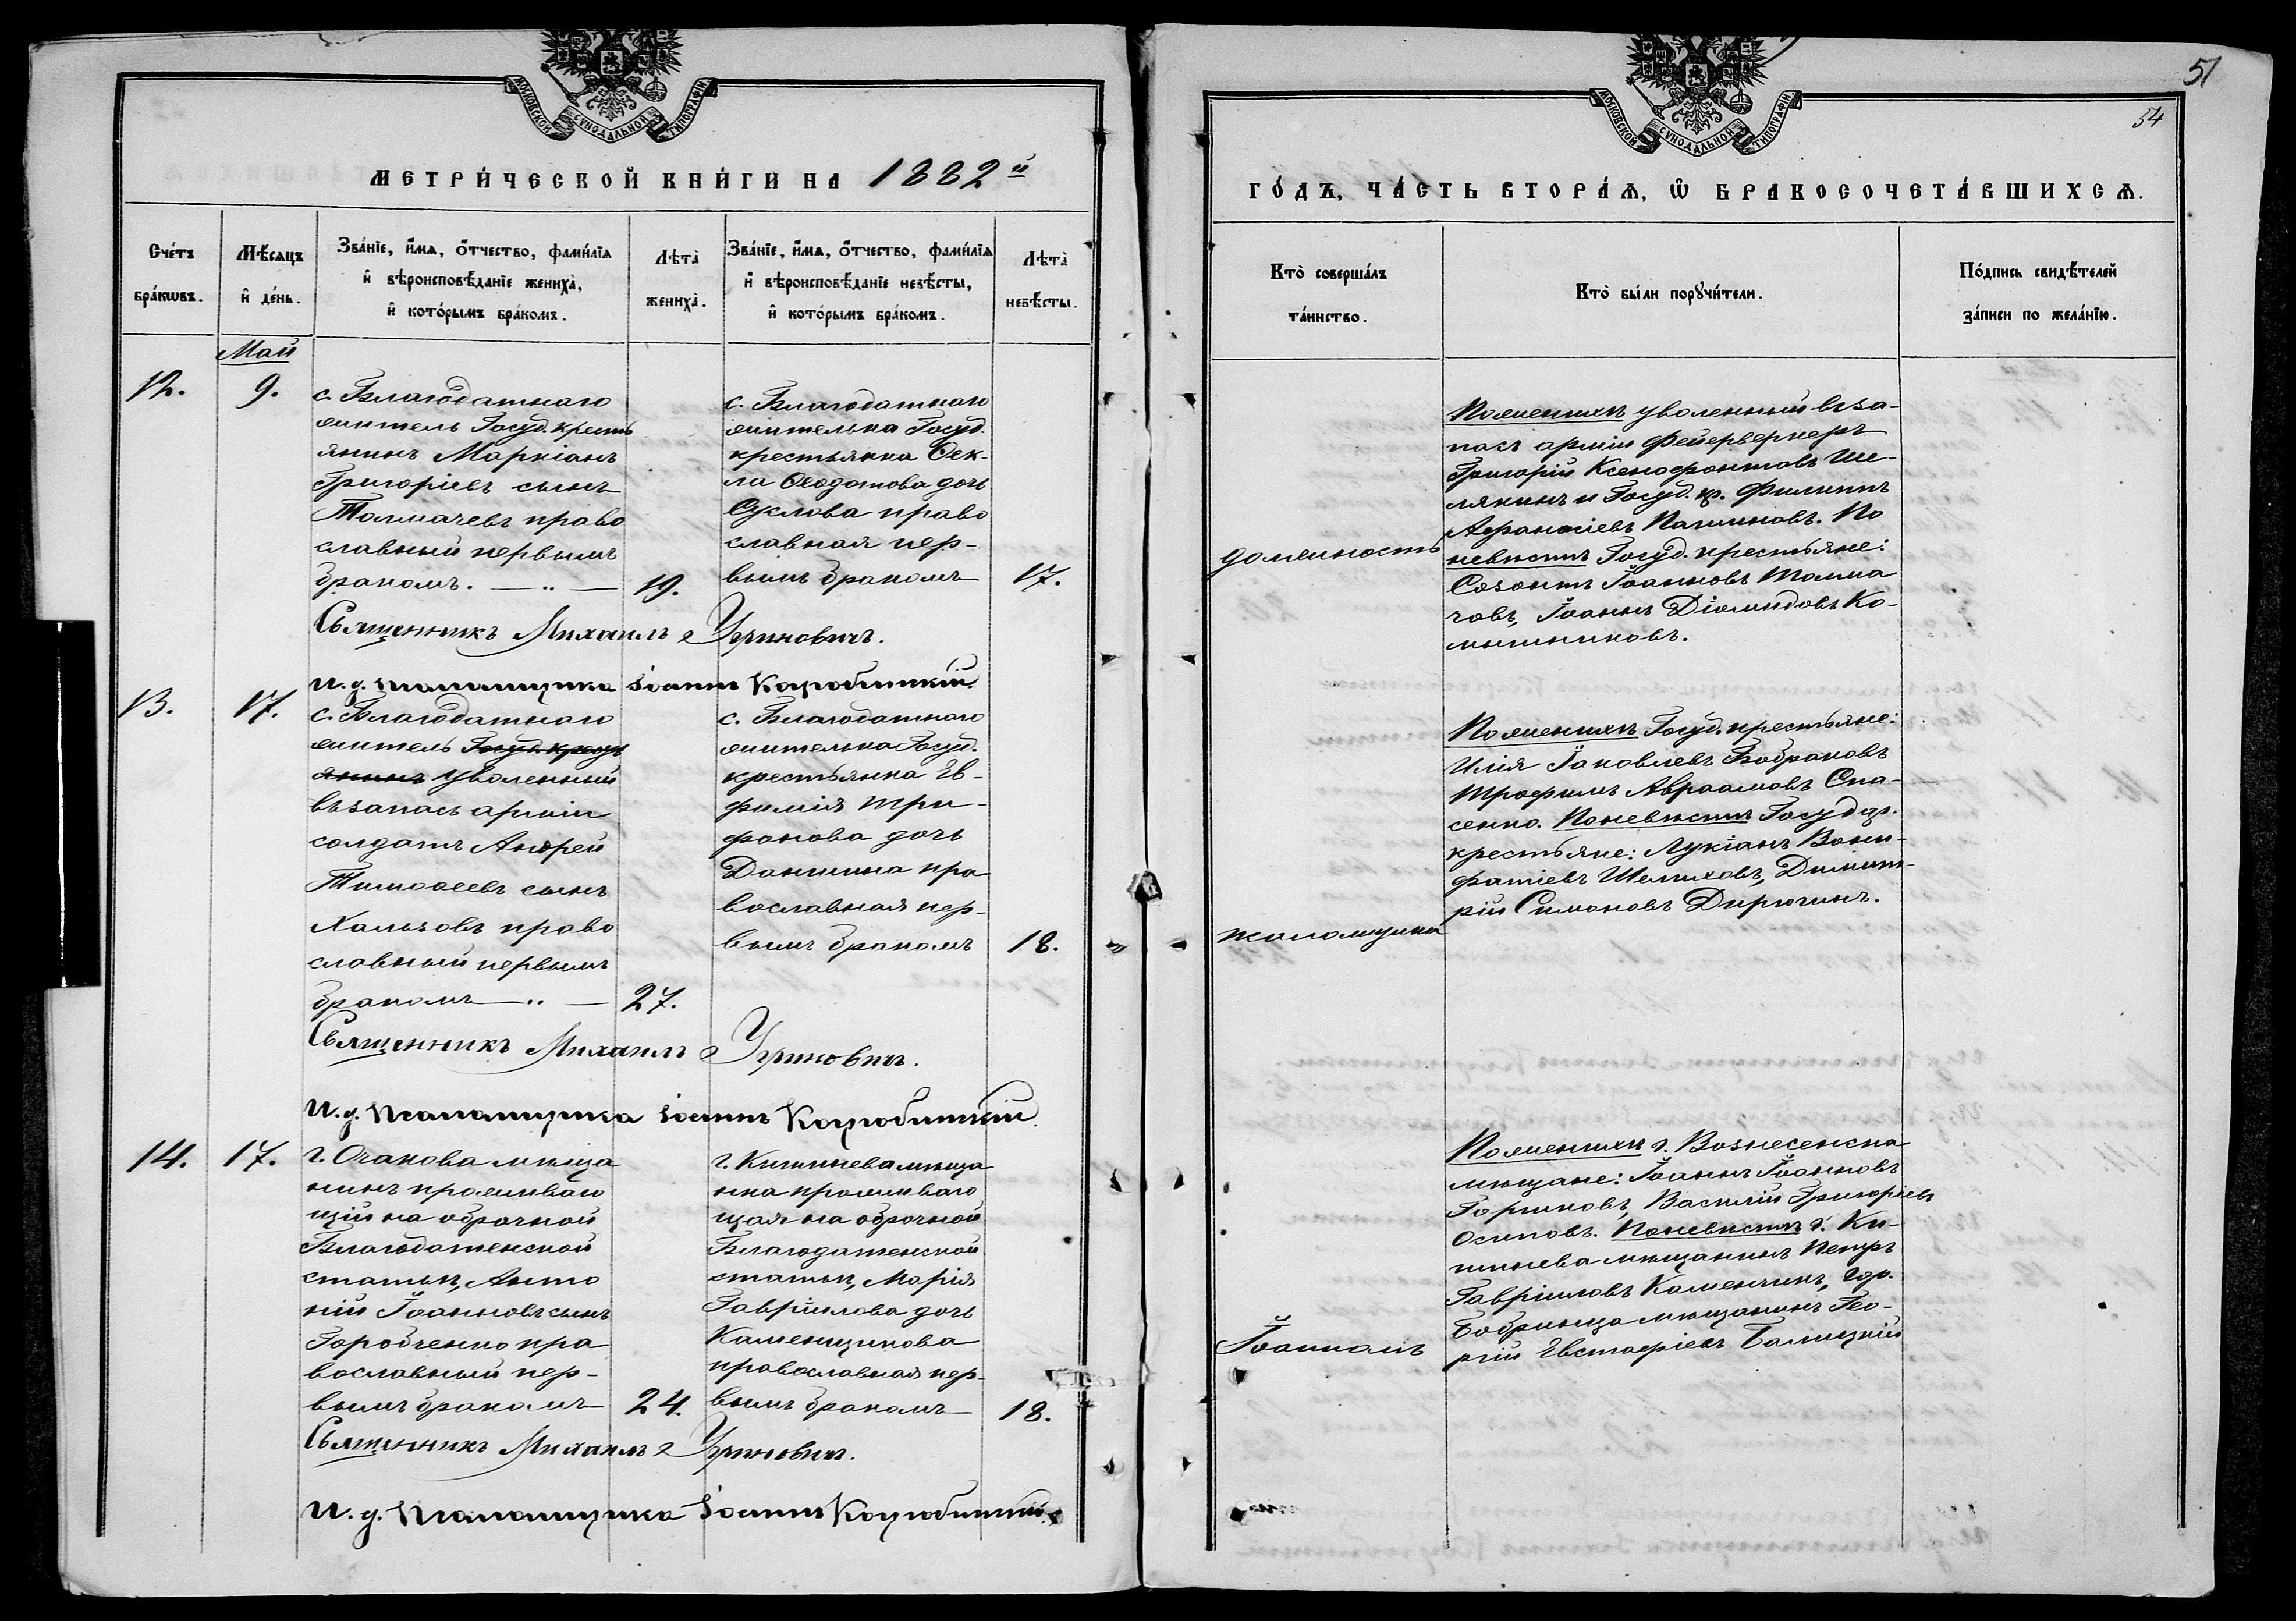 МОСКОВСКОЙ СѴНОДАЛЬНОЙ ТИПОГРАФІИ
МЕТРИ́ЧЕСКОЙ КНИ́ГИ НА 1882й
Сче́тъ бра́кѡвъ.
Мѣ́сяцъ и де́нь.
Зва́нїе, и҆́мя, о҆́тчество, фами́лїя и҆ вѣроисповѣ́данїе жениха̀, и҆ кото́рымъ бра́комъ.
Лѣта̀ жениха̀.
Зва́нїе, и҆́мя, о҆́тчество, фами́лїя и҆ вѣроисповѣ́данїе невѣ́сты, и҆ кото́рымъ бра́комъ.
Лѣта̀ невѣ́сты.
Май
12.
9.
с. Благодатнаго
житель Госуд. кресть
янинъ Маркіанъ
Григоріевъ сынъ
Толмачевъ право
славный первымъ
бракомъ.
19.
с. Благодатнаго
жителька Госуд.
крестьянка Өек-
ла Ѳеодотова дочь
Суслова право
славная пер-
вымъ бракомъ
17.
Священникъ Михаилъ Угриновичъ.
И. д. псаломщика Іоаннъ Коцюбинскій
13.
17.
с. Благодатнаго
житель Госуд. кресть
янинъ уволенный
въ запасъ арміи
солдатъ Андрей
Тимоѳеевъ сынъ
Хальзовъ право
славный первымъ
бракомъ
27.
с. Благодатнаго
жителька Госуд.
крестьянка Ев-
фимія Три-
фонова дочь
Даншина пра
вославная пер-
вымъ бракомъ
18.
Священникъ Михаилъ Угриновичъ.
И. д. псаломщика Іоаннъ Коцюбинскій.
14.
17.
г. Очакова мѣща
нинъ проживаю
щій на оброчной
Благодатенской
статьи, Анто
ній Іоанновъ сынъ
Горобченко пра
вославный пер-
вымъ бракомъ
24.
г. Кишинева мѣща
нка проживаю
щая на оброчной
Благодатенской
статьи, Марія
Гавріилова дочь
Каменщикова
православная пер-
вымъ бракомъ
18.
Священникъ Михаилъ Угриновичъ.
И. д. псаломщика Іоаннъ Коцюбинскій.
51
54
МОСКОВСКОЙ СѴНОДАЛЬНОЙ ТИПОГРАФІИ
ГО́ДЪ, ЧА́СТЬ ВТОРА́Я, Ѡ҆ БРАКОСОЧЕТА́ВШИХСЯ.
Кто̀ соверша́лъ та́инство.
Кто̀ бы́ли порꙋчи́тели.
По́дпись свидѣ́телей за́писи по жела́нїю.
должность
По женихѣ уволенный въ за-
пасъ арміи фейерверкеръ
Григорій Ксенофонтовъ Ше-
лякинъ и Госуд. кр. Филиппъ
Афанасіевъ Пашиновъ. По
невѣстѣ Госуд. крестьяне:
Созонтъ Іоанновъ Толма
човъ, Іоаннъ Діомидовъ Ко-
мышниковъ.
псаломщика
По женихѣ Госуд. крестьяне:
Илія Іаковлевъ Бобраковъ
Трофимъ Авраамовъ Спа-
сенко. По невѣстѣ Госуд. кр.
крестьяне: Лукіанъ Вони-
фатіевъ Шелиховъ, Димит-
рій Симоновъ Дирючинъ.
Іоанномъ
По женихѣ г. Вознесенска
мѣщане: Іоаннъ Іоанновъ
Горшковъ, Василій Григоріевъ
Осиповъ. По невѣстѣ г. Ки-
шинева мѣщанинъ Петръ
Гавріиловъ Каменчикъ, гор.
Бобринца мѣщанинъ Гео-
ргій Евстафіевъ Балицкій